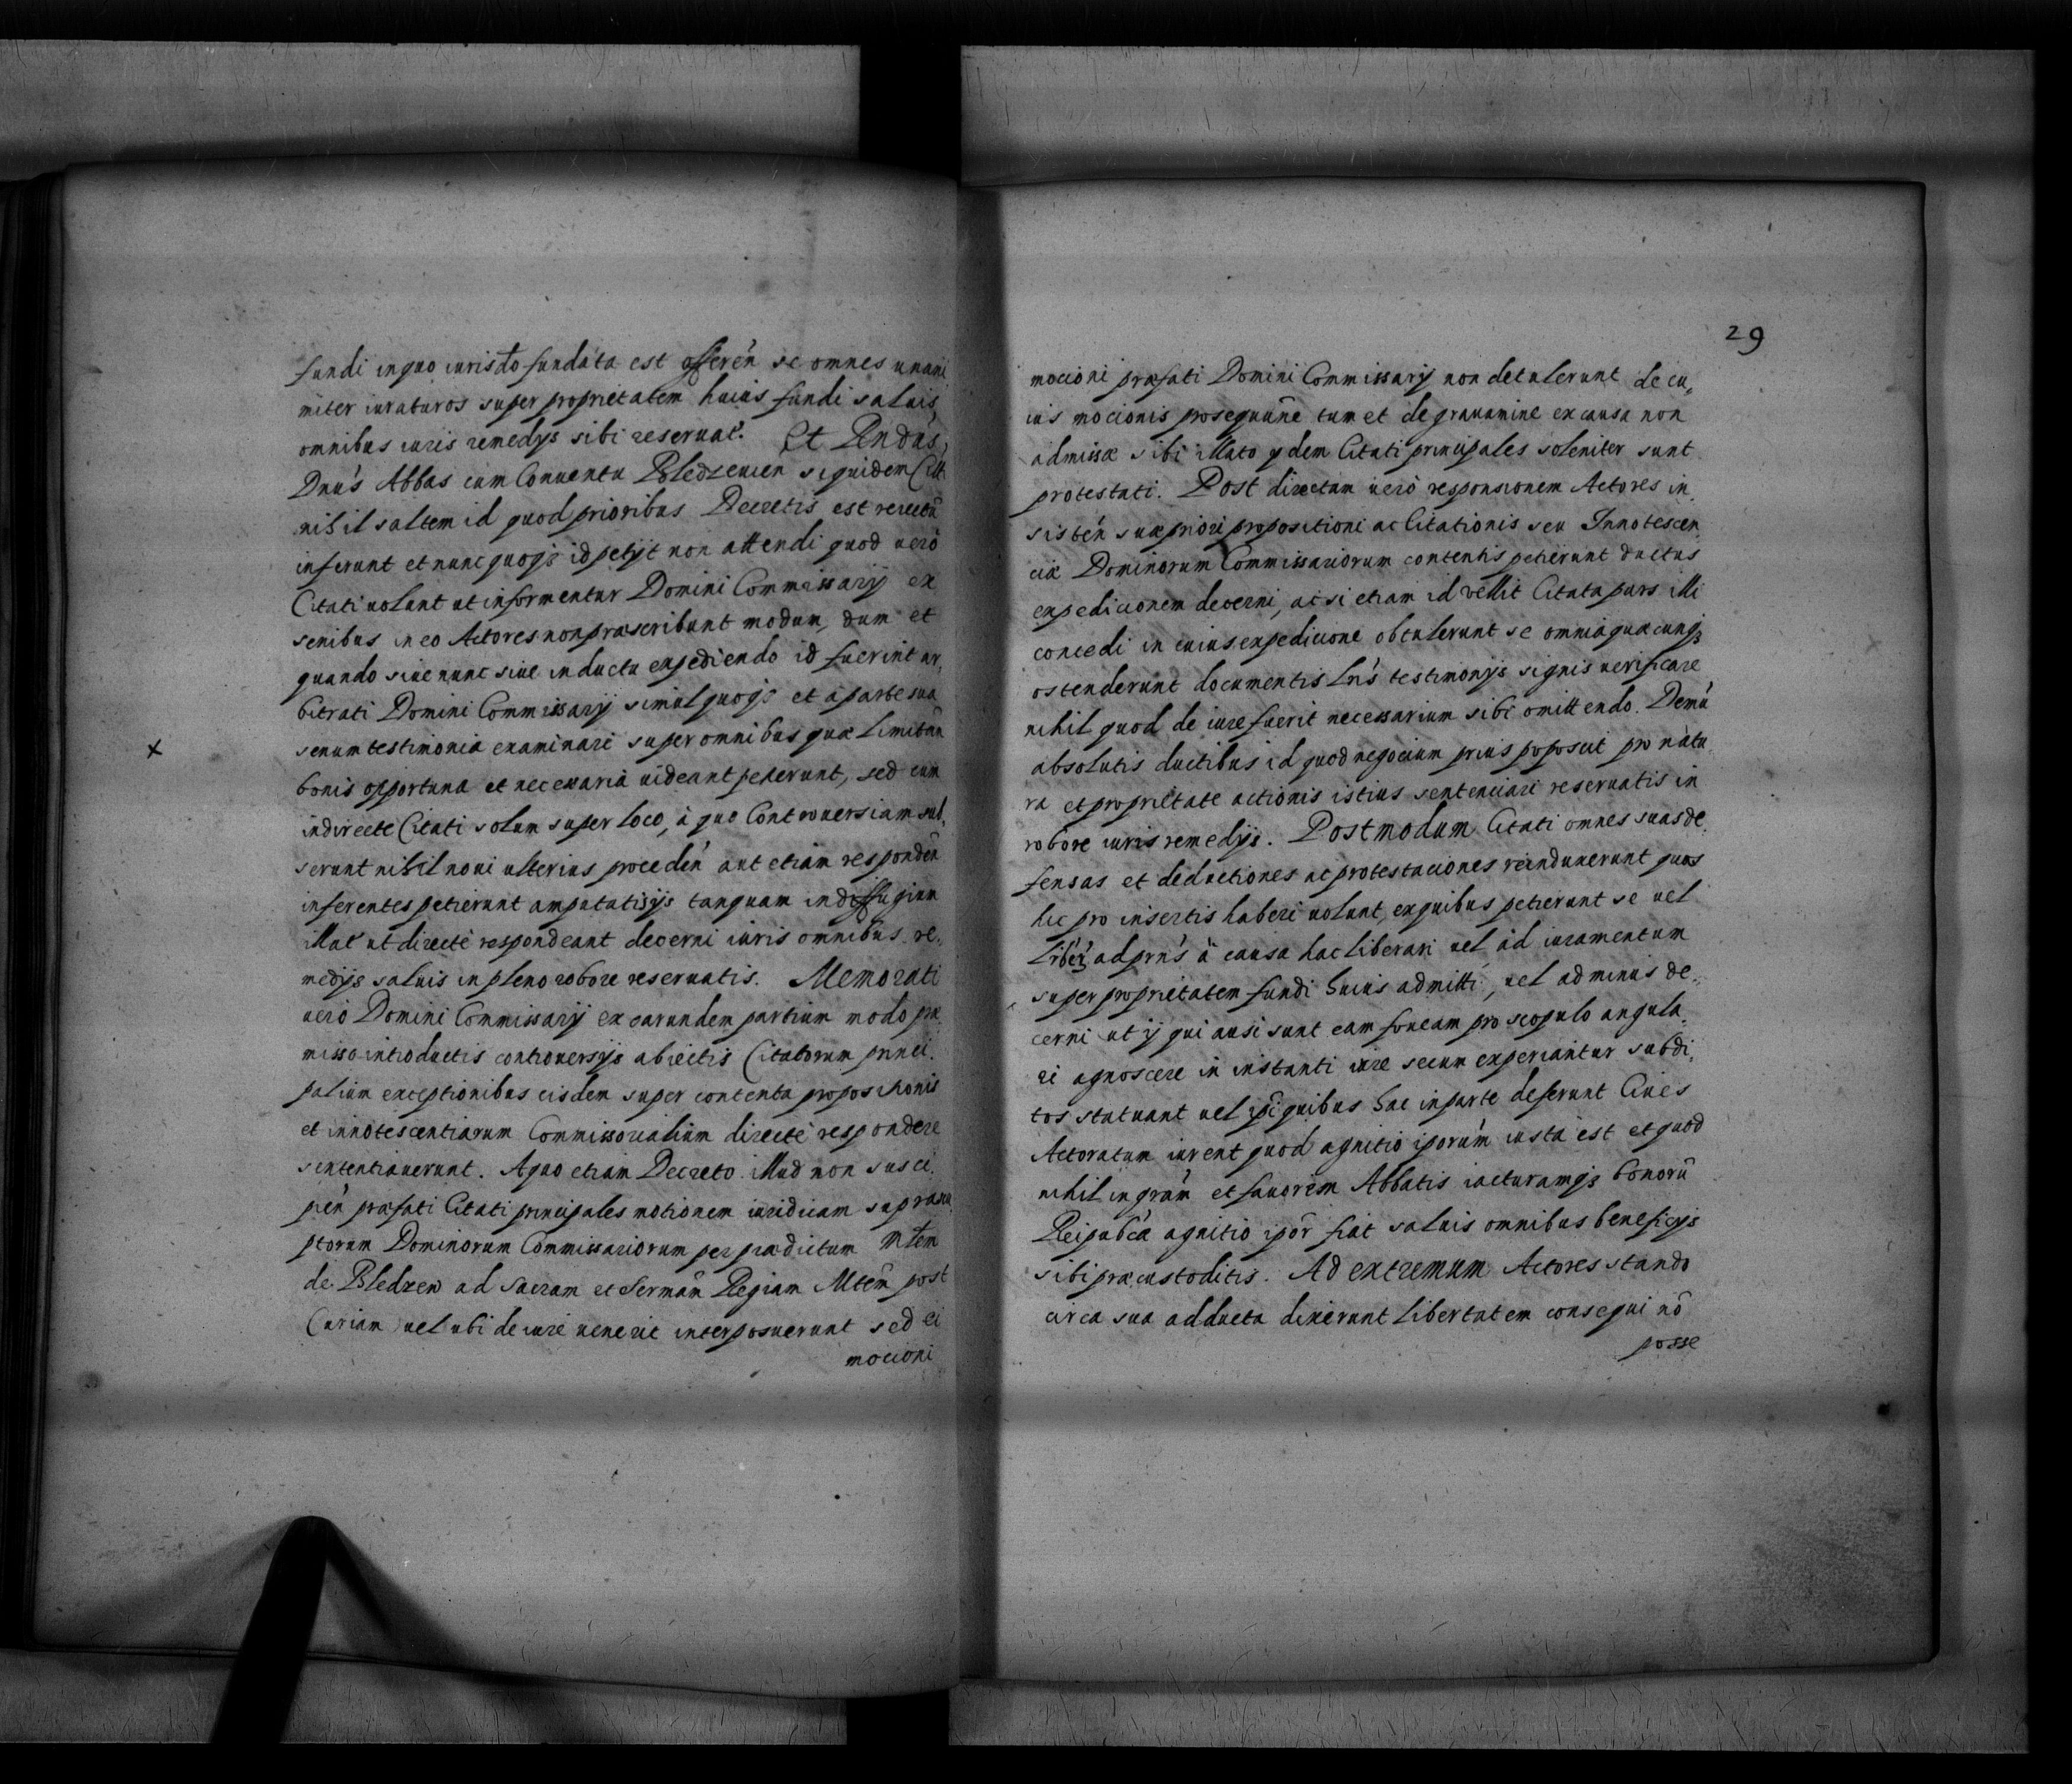 fundi in quo iurisdto fundata est offeren̄ se omnes unani
miter iuraturos super proprietatem huius fundi saluis
omnibus iuris remedys sibi reseruat. Et Rndus
Dnus Abbas cum Conuentu Bledzeuien siquidem Citti
nihil saltem id quod prioribus Decretis est reiectū
inferunt et nunc quoqz id petyt non attendi quod uero
Citati uolunt ut informentur Domini Commissarij ex
senibus in eo Actores non præscribunt modum, dum et
quando siue nunc siue in ductu expediendo id fuerint ar,
bitrati Domini Commissarij simul quoqz et a parte sua
senum testimonia examinari super omnibus quæ limitan̄
bonis opportuna et necessaria uideant petierunt, sed cum
indirecte Citati solum super loco, à quo Controuersiam sub,
serunt nihil noui ulterius proceden̄ aut etiam responden̄
inferentes petierunt amputatis ijs tanquam in diffugium
illat ut directè respondeant decerni iuris omnibus re,
medijs saluis in pleno robore reseruatis. Memorati
uerò Domini Commissarij ex earundem partium modo præ
misso introductis controuersijs abiectis Citatorum princi,
palium exceptionibus eisdem super contenta propositionis
et innotescentiarum Commissorialium directè respondere
sententiauerunt. A quo etiam Decreto illud non susci,
pien̄ præfati Citati principales motionem iuridicam suprascri
ptorum Dominorum Commissariorum per prædictum Mtem
de Bledzew ad Sacram et Sermam Regiam Mtem post
Curiam uel ubi de iure uenerit interposuerunt sed ei
mocioni
29
mocioni præfati Domini Commissarij non detulerunt de cu,
ius mocionis prosequūne tum et de grauamine ex causa non
admissæ sibi illato ydem Citati principales soleniter sunt
protestati. Post directam uerò responsionem Actores in,
sisten̄ suæ priori propositioni ac Citationis seu Innotescen,
ciæ Dominorum Commissariorum contentis petierunt ductus
expedicionem decerni, ac si etiam id vellit Citata pars illi
concedi in cuius expedicione obtulerunt se omnia quæcunqz
ostenderunt documentis Lrīs testimonijs signis uerificare
nihil quod de iure fuerit necessarium sibi omittendo. Demū
absolutis ductibus id quod negocium prius poposcit pro natu,
ra et proprietate actionis istius sentenciari reseruatis in
robore iuris remedijs. Postmodum Citati omnes suas de,
fensas et deductiones ac protestaciones reinduxerunt quas
hic pro insertis haberi uolunt, ex quibus petierunt se uel
Liberz ad prn̄s à causa hac liberari uel ad iuramentum
super proprietatem fundi huius admitti, uel ad minus de,
cerni ut ij qui ausi sunt eam foueam pro scopulo angula,
ri agnoscere in instanti iure secum experiantur subdi,
tos statuant uel ipi quibus hac in parte deferunt Ciues
Actoratum iurent quod agnitio iporum iusta est et quod
nihil in gram et fauorem Abbatis iacturamqz bonorū
Reipubcæ agnitio ipor fiat saluis omnibus beneficijs
sibi præcustoditis. Ad extremum Actores stando
circa sua adducta dixerunt libertatem consequi nō
posse